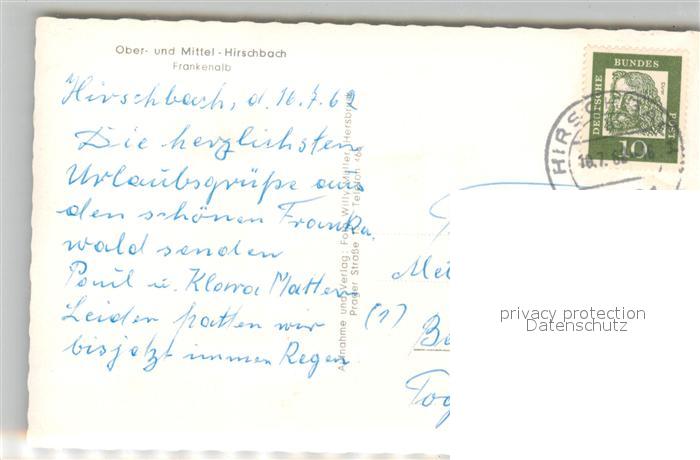 Ober- und Mittel-Hirschbach
Frankenalb
Hirschbach, d. 16.7.62
Die herzlichsten
Urlaubsgrüße aus
den schönen Franken
wald senden
Paul u. Klara Mattern
Leider hatten wir
bisjetzt immer Regen
Aufnahme und Verlag: Foto Willy Müller, Hersbruck
Prager Straße Telefon
DEUTSCHE
BUNDES
POST
10
HIRSCH
16.7.62
Mei
(1)
Be
privacy protection
Datenschutz